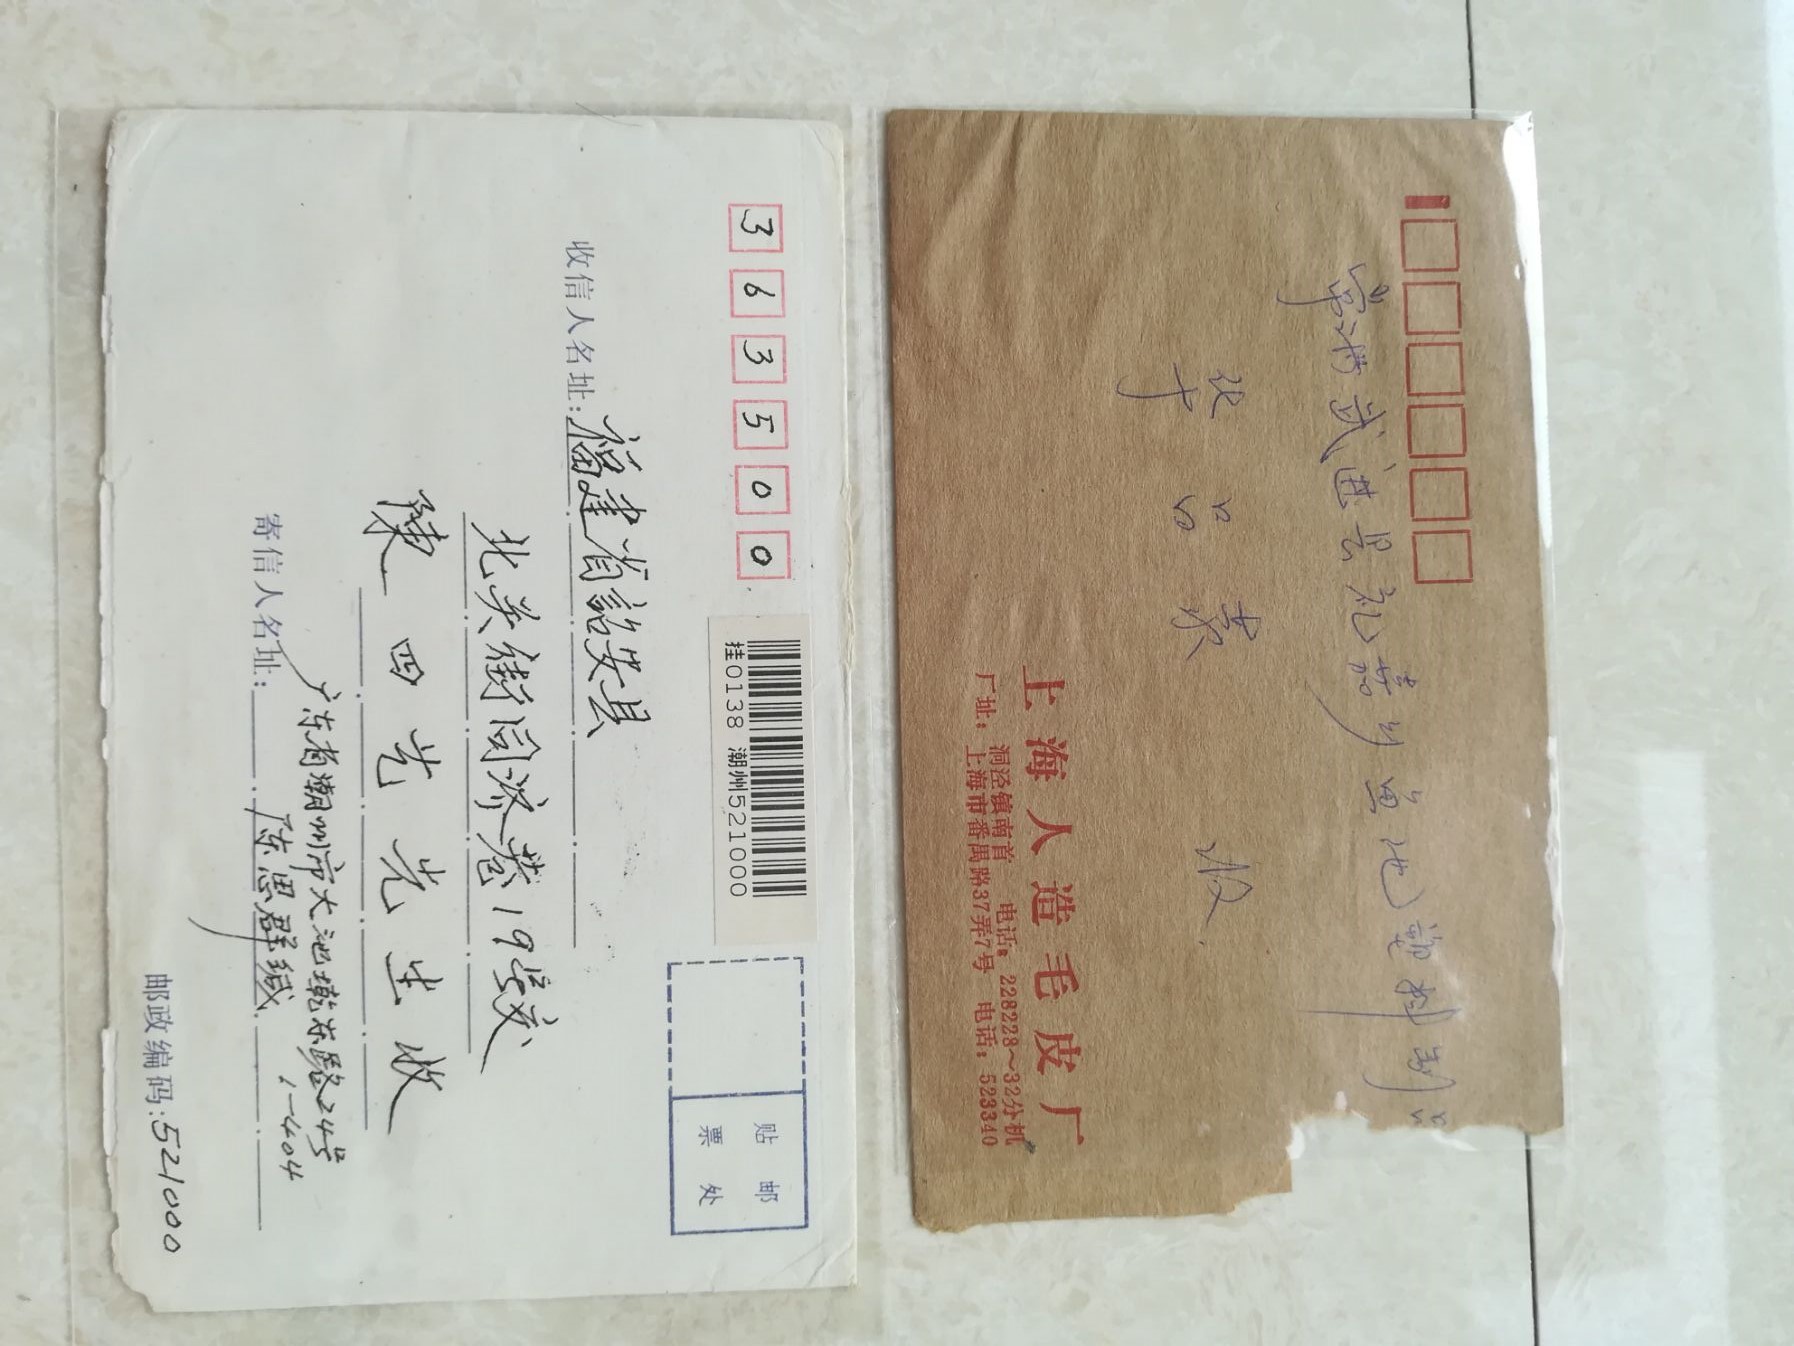 363500
挂0138 潮州521000
贴邮
票处
收信人名址:福建省詔安县
北关街同济巷19号交
陳四光先生收
寄信人名址:广东省潮州市大池墘东路24号
1-404
陈思群缄
邮政编码:521000
武进县礼嘉
收
上海人造毛皮厂
洞泾镇南首 电话:228223~32分机
厂址:上海市番禺路37弄7号 电话:523340